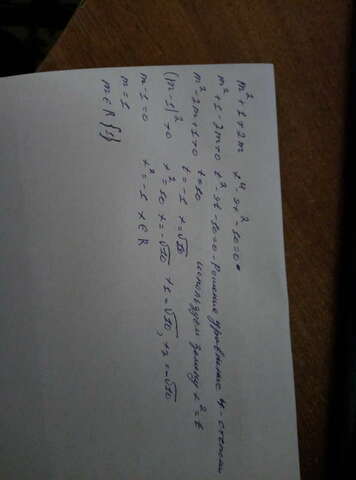 m² + 1 ≠ 2m    x⁴ - 9x² - 10 = 0
m² + 1 - 2m ≠ 0    t² - 9t - 10 = 0 - решение уравнение 4-степени
m² - 2m + 1 ≠ 0    t = 10    используем замену x² = t
(m-1)² ≠ 0    t = -1    x = √10
m - 1 = 0    x² = 10    x = -√10    x1 = √10, x2 = -√10
m = 1    x² = -1    x ∈ R
m ∈ R {1}